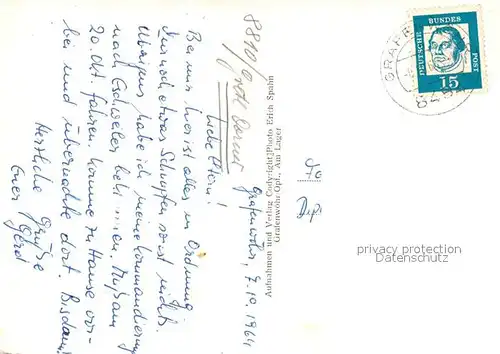 8810/Groß Dornet
Grafenwöhr, 7.10.1964
Liebe Eltern!
Bei mir hier ist alles in Ordnung
Nur noch etwas Schnupfen sonst nichts.
Übrigens habe ich meine Kommandierung
nach Eschweiler bekommen. Muß am
20. Okt. fahren. Komme zu Hause vor-
bei und übernachte dort. Bis dann!
Herzliche Grüße
Euer Gerd
Aufnahmen und Verlag Copyright Photo Erich Spahn
Grafenwöhr Opf., Am Lager
GRAFE
DEUTSCHE
BUNDES
POST
15
privacy protection
Datenschutz